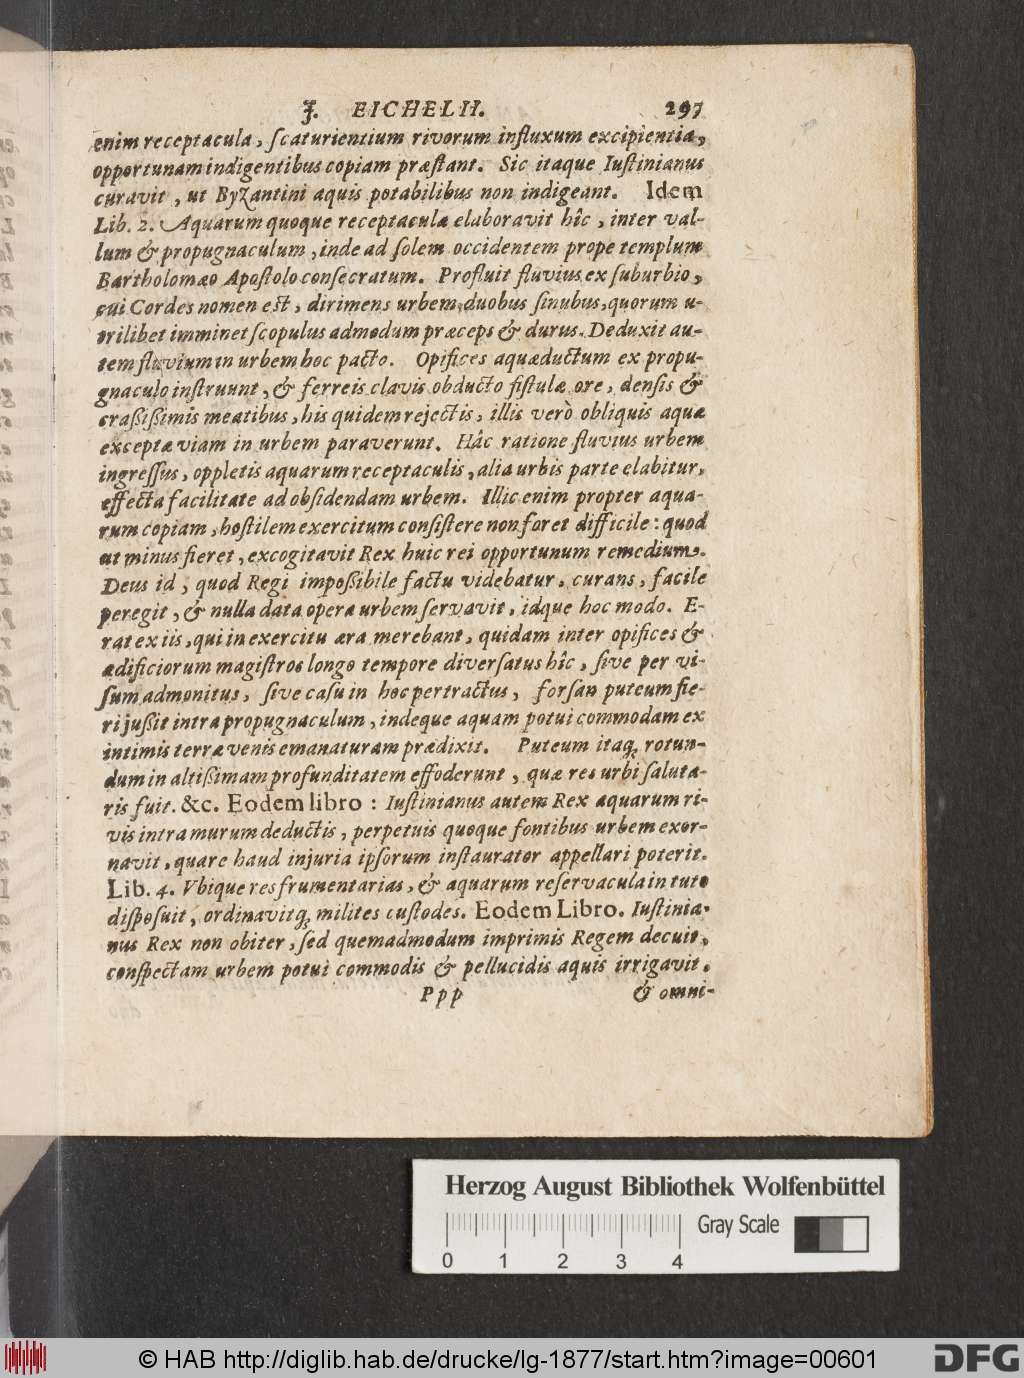 J. EICHELII. 297
enim receptacula, ſcaturientium rivorum influxum excipientia,
opportunam indigentibus copiam præſtant. Sic itaque Iuſtinianus
curavit, ut Byzantini aquis potabilibus non indigeant. Idem
Lib. 2. Aquarum quoque receptacula elaboravit hîc, inter val-
lum & propugnaculum, inde ad ſolem occidentem prope templum
Bartholomæo Apoſtolo conſecratum. Profluit fluvius ex ſuburbio,
cui Cordes nomen eſt, dirimens urbem duobus ſinubus, quorum u-
trilibet imminet ſcopulus admodum præceps & durus. Deduxit au-
tem fluvium in urbem hoc pacto. Opifices aquæductum ex propu-
gnaculo inſtruunt, & ferreis clavis obducto fiſtulæ ore, denſis &
craßißimis meatibus, his quidem rejectis, illis verò obliquis aquæ
exceptæ viam in urbem paraverunt. Hâc ratione fluvius urbem
ingreſſus, oppletis aquarum receptaculis, alia urbis parte elabitur,
effecta facilitate ad obſidendam urbem. Illic enim propter aqua-
rum copiam, hoſtilem exercitum conſiſtere non foret difficile: quod
ut minus fieret, excogitavit Rex huic rei opportunum remedium.
Deus id, quod Regi impoßibile factu videbatur, curans, facile
peregit, & nulla data opera urbem ſervavit, idque hoc modo. E-
rat ex iis, qui in exercitu æra merebant, quidam inter opifices &
ædificiorum magiſtros longo tempore diverſatus hîc, ſive per vi-
ſum admonitus, ſive caſu in hoc pertractus, forſan puteum fie-
ri jußit intra propugnaculum, indeque aquam potui commodam ex
intimis terræ venis emanaturam prædixit. Puteum itaq; rotun-
dum in altißimam profunditatem effoderunt, quæ res urbi ſaluta-
ris fuit. &c. Eodem libro: Iuſtinianus autem Rex aquarum ri-
vis intra murum deductis, perpetuis quoque fontibus urbem exor-
navit, quare haud injuria ipſorum inſtaurator appellari poterit.
Lib. 4. Vbique res frumentarias, & aquarum reſervacula in tuto
diſpoſuit, ordinavitq; milites cuſtodes. Eodem Libro. Iuſtinia-
nus Rex non obiter, ſed quemadmodum imprimis Regem decuit,
conſpectam urbem potui commodis & pellucidis aquis irrigavit.
Ppp & omni-
Herzog August Bibliothek Wolfenbüttel
0 1 2 3 4 Gray Scale
© HAB http://diglib.hab.de/drucke/lg-1877/start.htm?image=00601 DFG